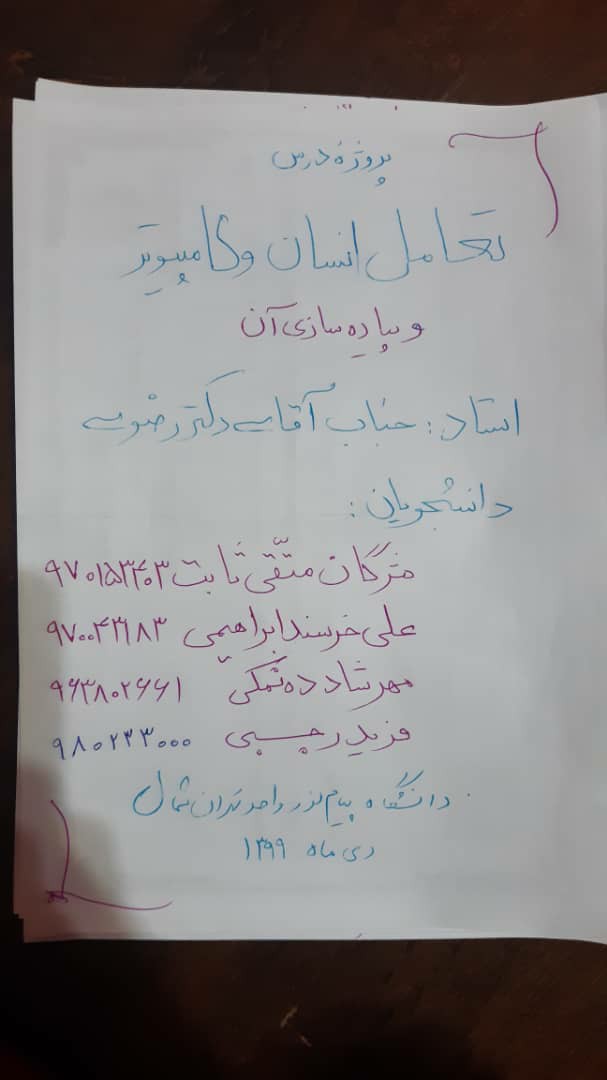 پروژهٔ درس
تعامل انسان و کامپیوتر
و پیاده سازی آن
استاد: جناب آقای دکتر رضوی
دانشجویان:
مژگان متّقی ثابت ۹۷۰۱۵۳۴۰۳
علی خرسند ابراهیمی
مهرشاد ده نمکی ۹۶۳۸۰۲۶۶۱
فرید رجبی ۹۸۰۲۳۳۰۰۰
دانشگاه پیام نور واحد تهران شمال
دی ماه ۱۳۹۹